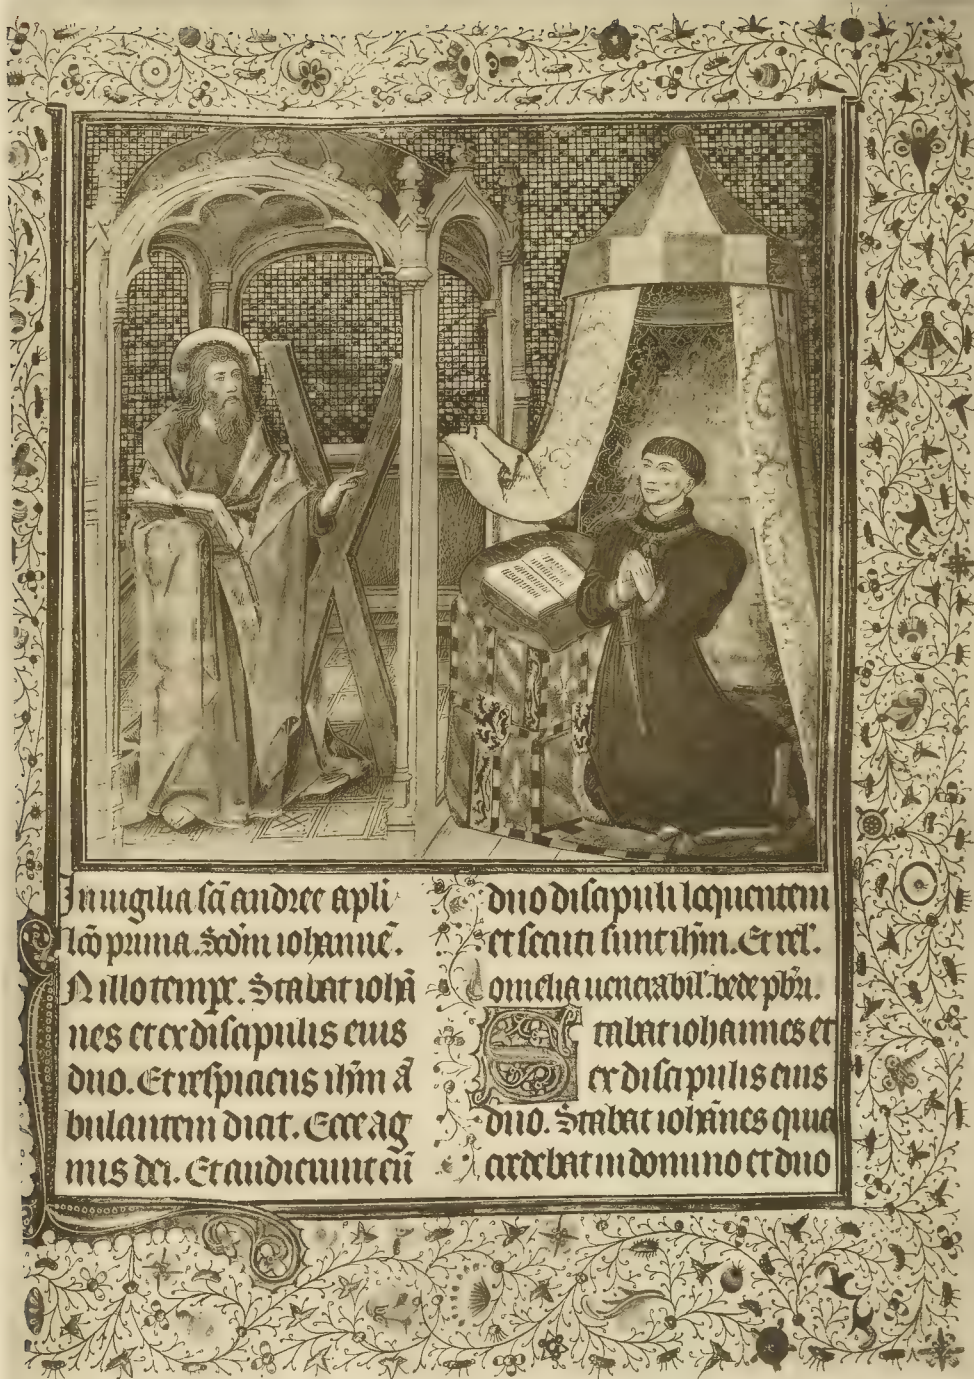 In uigilia sc̄i andree apl̄i
lc̄o prima. Scd̄m iohannē.
N illo tempr̄. Stabat iohā
nes et ex discipulis eius
duo. Et respiciens ih̄m ā
bulantem dicit. Ecce ag
nus dei. Et audierunt eū
duo discipuli loquentem
et secuti sunt ih̄m. Et rel'.
omelia uenerabil'. bede pbr̄i.
Stabat iohannes et
ex discipulis eius
duo. Stabat iohānes quia
ardebat in domino et duo